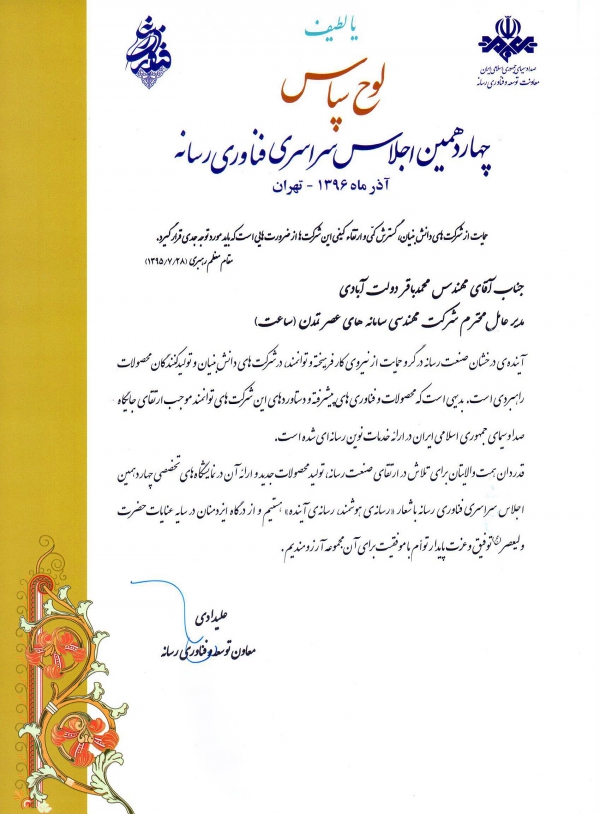 یا لطیف
صدا و سیمای جمهوری اسلامی ایران
معاونت توسعه و فناوری رسانه
لوح سپاس
چهاردهمین اجلاس سراسری فناوری رسانه
آذر ماه ۱۳۹۶ - تهران
حمایت از شرکت های دانش بنیان، گسترش کمّی و ارتقاء کیفی این شرکت ها از ضرورت هایی است که باید مورد توجه جدی قرار گیرد.
مقام معظم رهبری (۱۳۹۵/۷/۲۸)
جناب آقای مهندس محمدباقر دولت آبادی
مدیر عامل محترم شرکت مهندسی سامانه های عصر تمدن (ساعت)
آینده‌ی درخشان صنعت رسانه در گرو حمایت از نیروی کار فرهیخته و توانمند، در شرکت های دانش بنیان و تولیدکنندگان محصولات
راهبردی است. بدیهی است که محصولات و فناوری های پیشرفته و دستاوردهای این شرکت های توانمند موجب ارتقای جایگاه
صدا و سیمای جمهوری اسلامی ایران در ارائه خدمات نوین رسانه ای شده است.
قدردان همت والایتان برای تلاش در ارتقای صنعت رسانه، تولید محصولات جدید و ارائه آن در نمایشگاه های تخصصی چهاردهمین
اجلاس سراسری فناوری رسانه با شعار «رسانه‌ی هوشمند، رسانه‌ی آینده» هستیم و از درگاه ایزدمنان در سایه عنایات حضرت
ولیعصر (عج) توفیق و عزت پایدار توأم با موفقیت برای آن مجموعه آرزومندیم.
علیدادی
معاون توسعه و فناوری رسانه